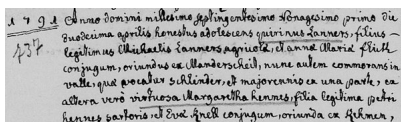 1791 Anno domini millesimo septingentesimo Nonagesimo primo die
737 duodecima aprilis honestus adolescens quirinus Lanners, filius
legitimus Michaelis Lanners agricola, et anna Maria
conjugum, oriundus ex Manderscheid, nunc autem commorans in
valle, qua vocatur Schlinder, et majorennis ex una parte, ex
altera vero virtuosa Margaretha hennes, filia legitima petri
hennes sartoris et Eva Knell conjugum, oriunda ex Kehmen,